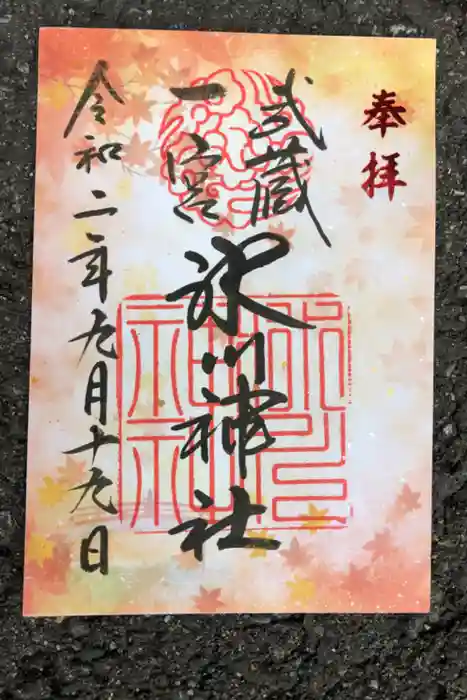 奉拝
武蔵
一宮
氷川神社
令和二年九月十九日
氷川神社